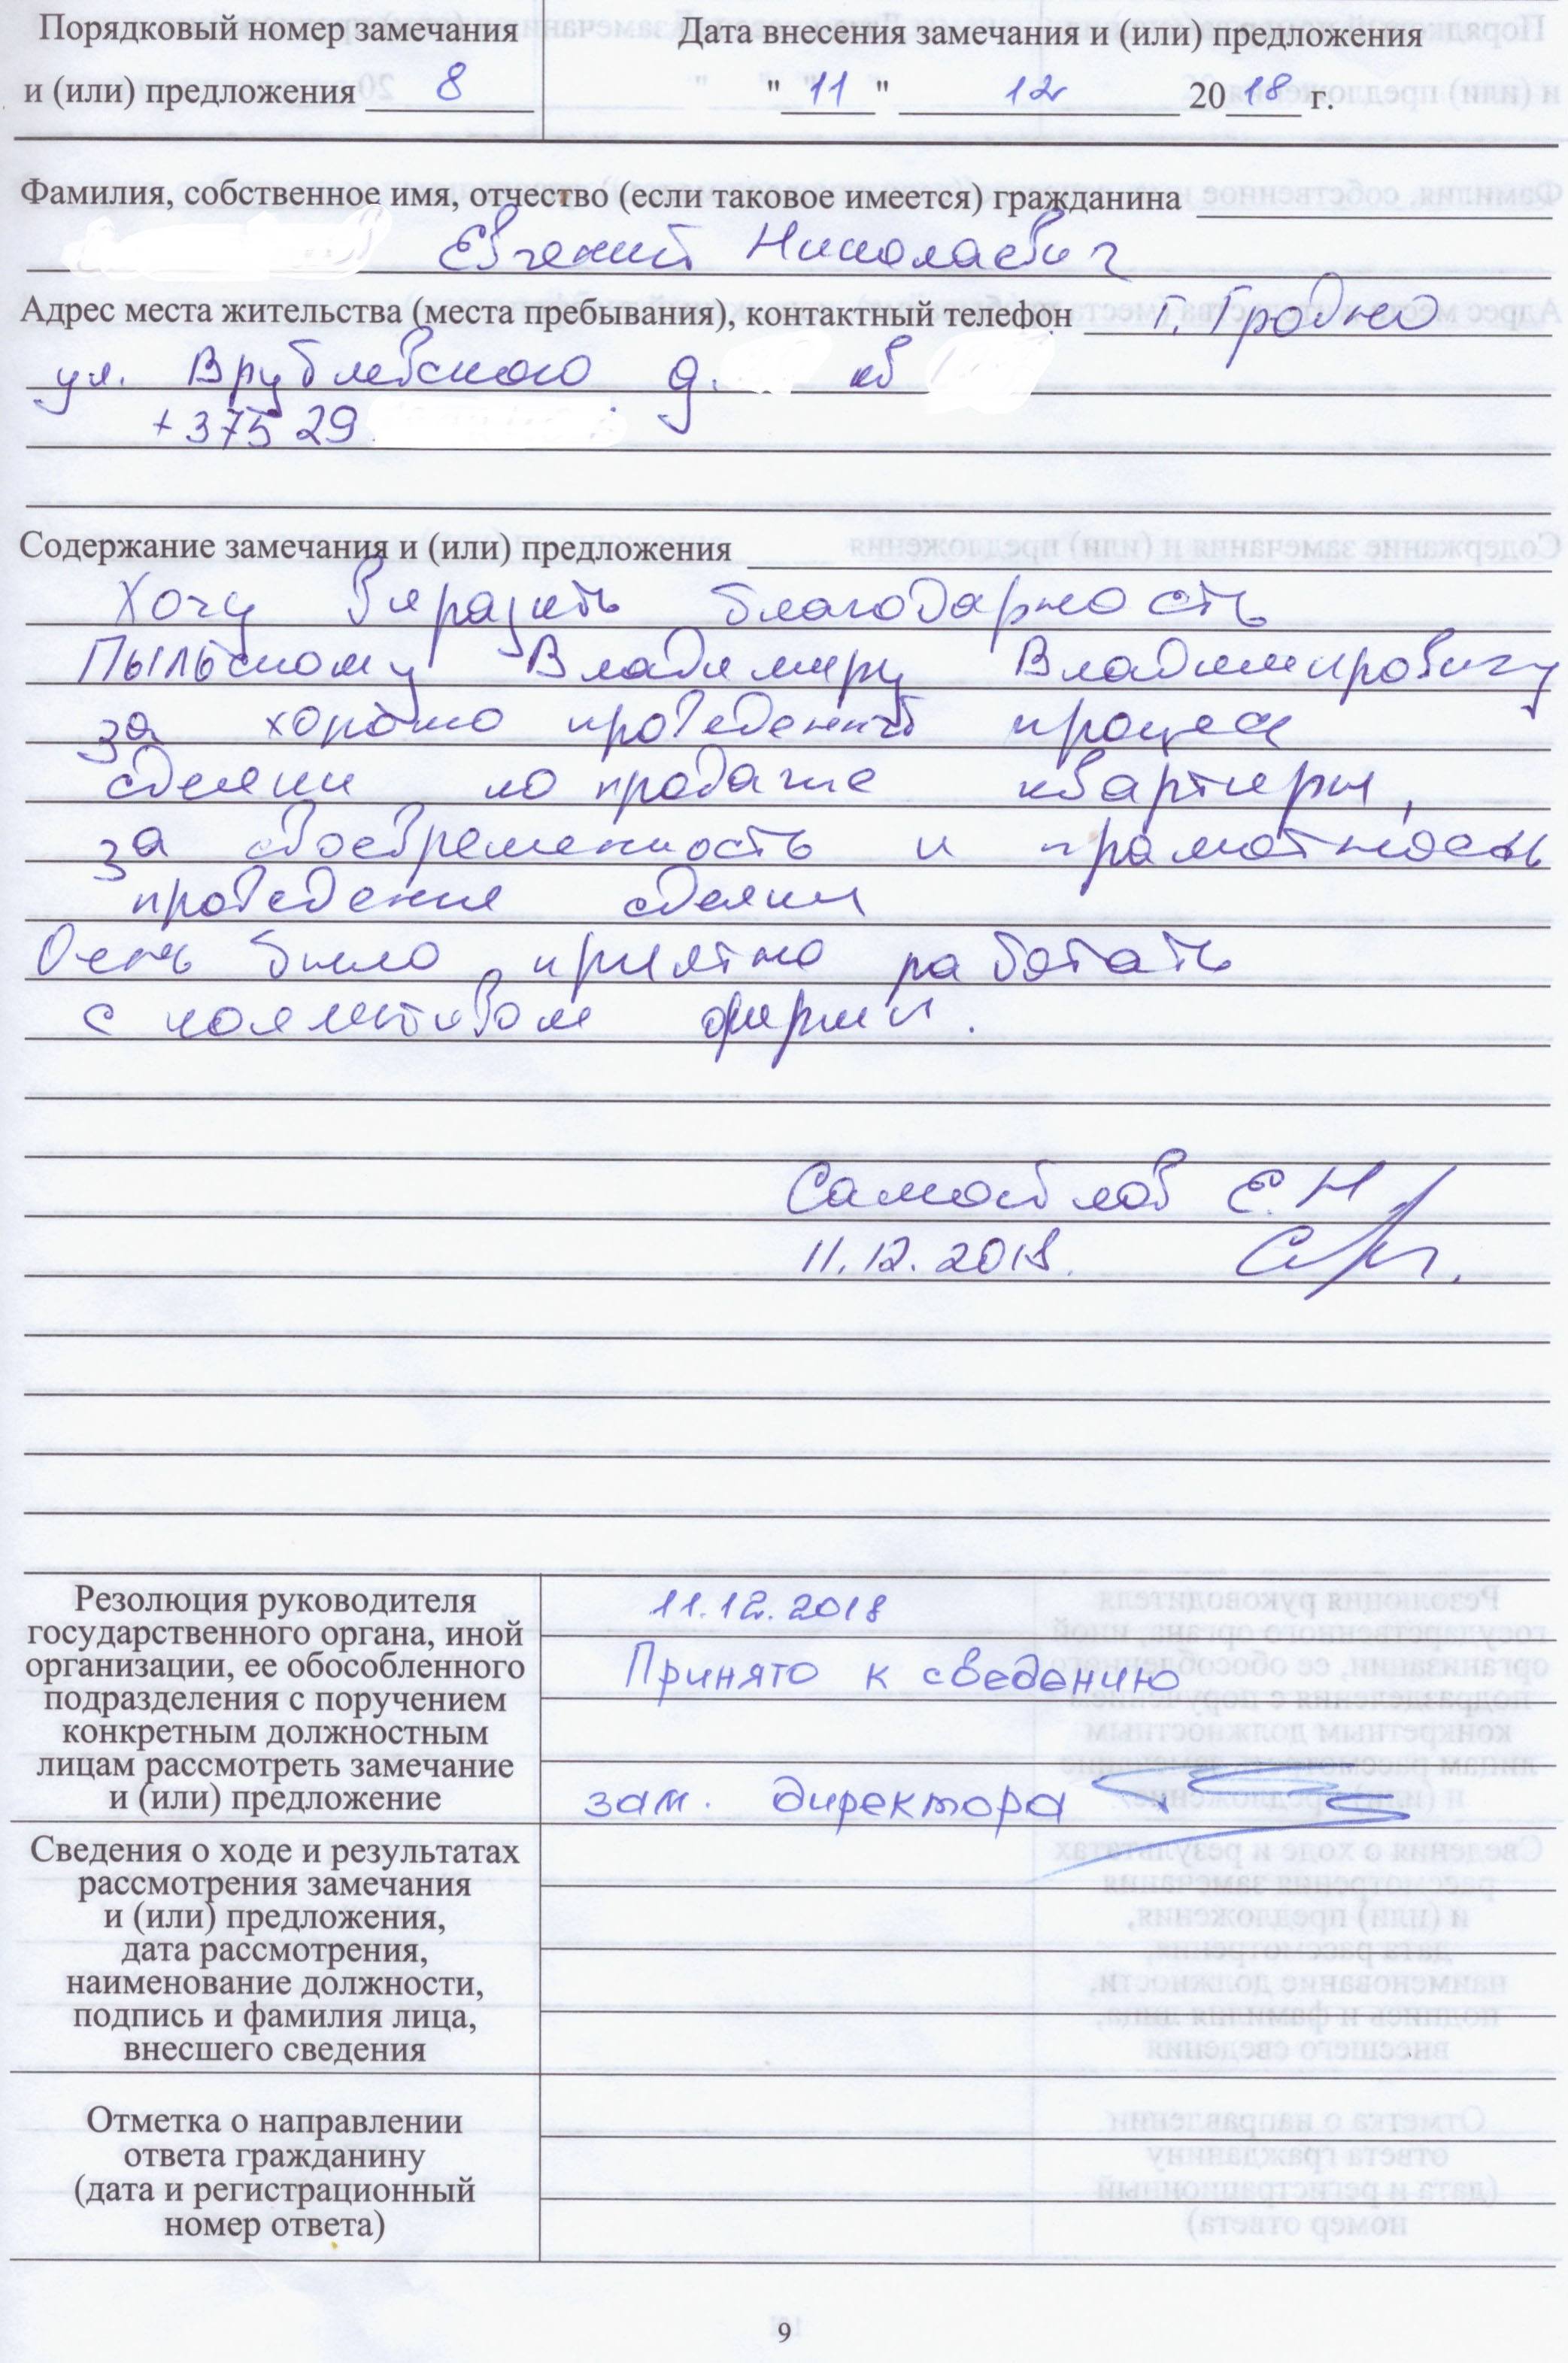 Порядковый номер замечания
и (или) предложения 8
Дата внесения замечания и (или) предложения
" 11 " 12 2018 г.
Фамилия, собственное имя, отчество (если таковое имеется) гражданина
Евгений Николаевич
Адрес места жительства (места пребывания), контактный телефон г. Гродно
ул. Врублевского д. кв
+375 29
Содержание замечания и (или) предложения
Хочу выразить благодарность
Пыльскому Владимиру Владимировичу
за хорошо проведенный процесс
сделки по продаже квартиры,
за своевременность и грамотность
проведения сделки
Очень было приятно работать
с коллективом фирмы.
Самойлов Е.Н
11.12.2018.
Резолюция руководителя
государственного органа, иной
организации, ее обособленного
подразделения с поручением
конкретным должностным
лицам рассмотреть замечание
и (или) предложение
11.12.2018
Принято к сведению
зам. директора
Сведения о ходе и результатах
рассмотрения замечания
и (или) предложения,
дата рассмотрения,
наименование должности,
подпись и фамилия лица,
внесшего сведения
Отметка о направлении
ответа гражданину
(дата и регистрационный
номер ответа)
9